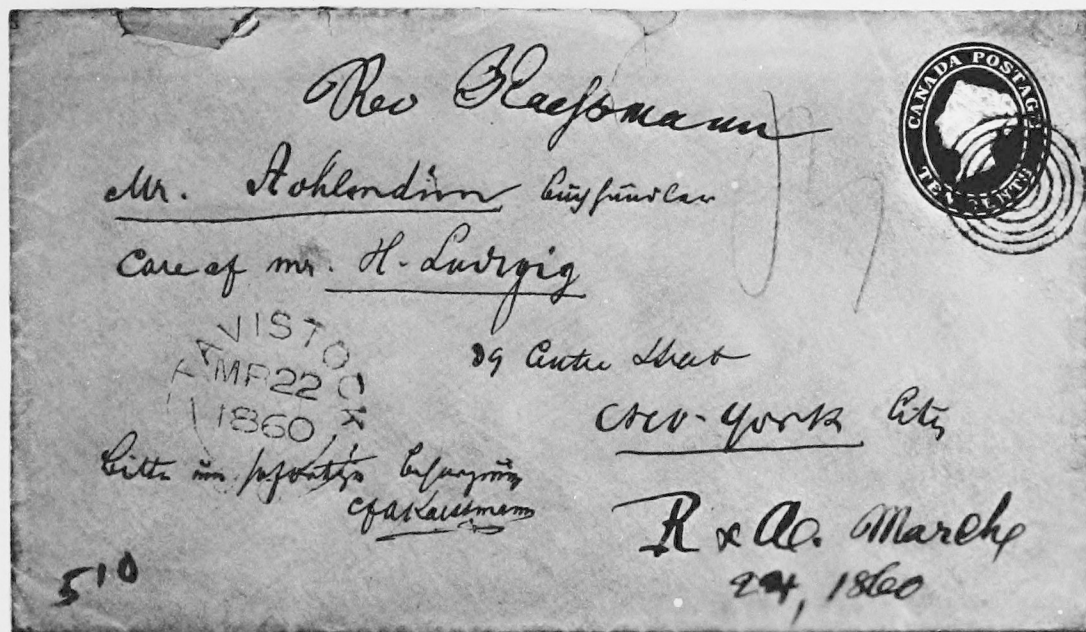 CANADA POSTAGE
TEN CENTS
Rev Kaessmann
Mr. Stohlmann Buchhändler
Care of mr. H. Ludwig
39 Centre Street
New-York City
TAVISTOCK
MR 22
1860
Bitte um sofortige Besorgung
CFA Kaessmann
R & A. March
24, 1860
5 10